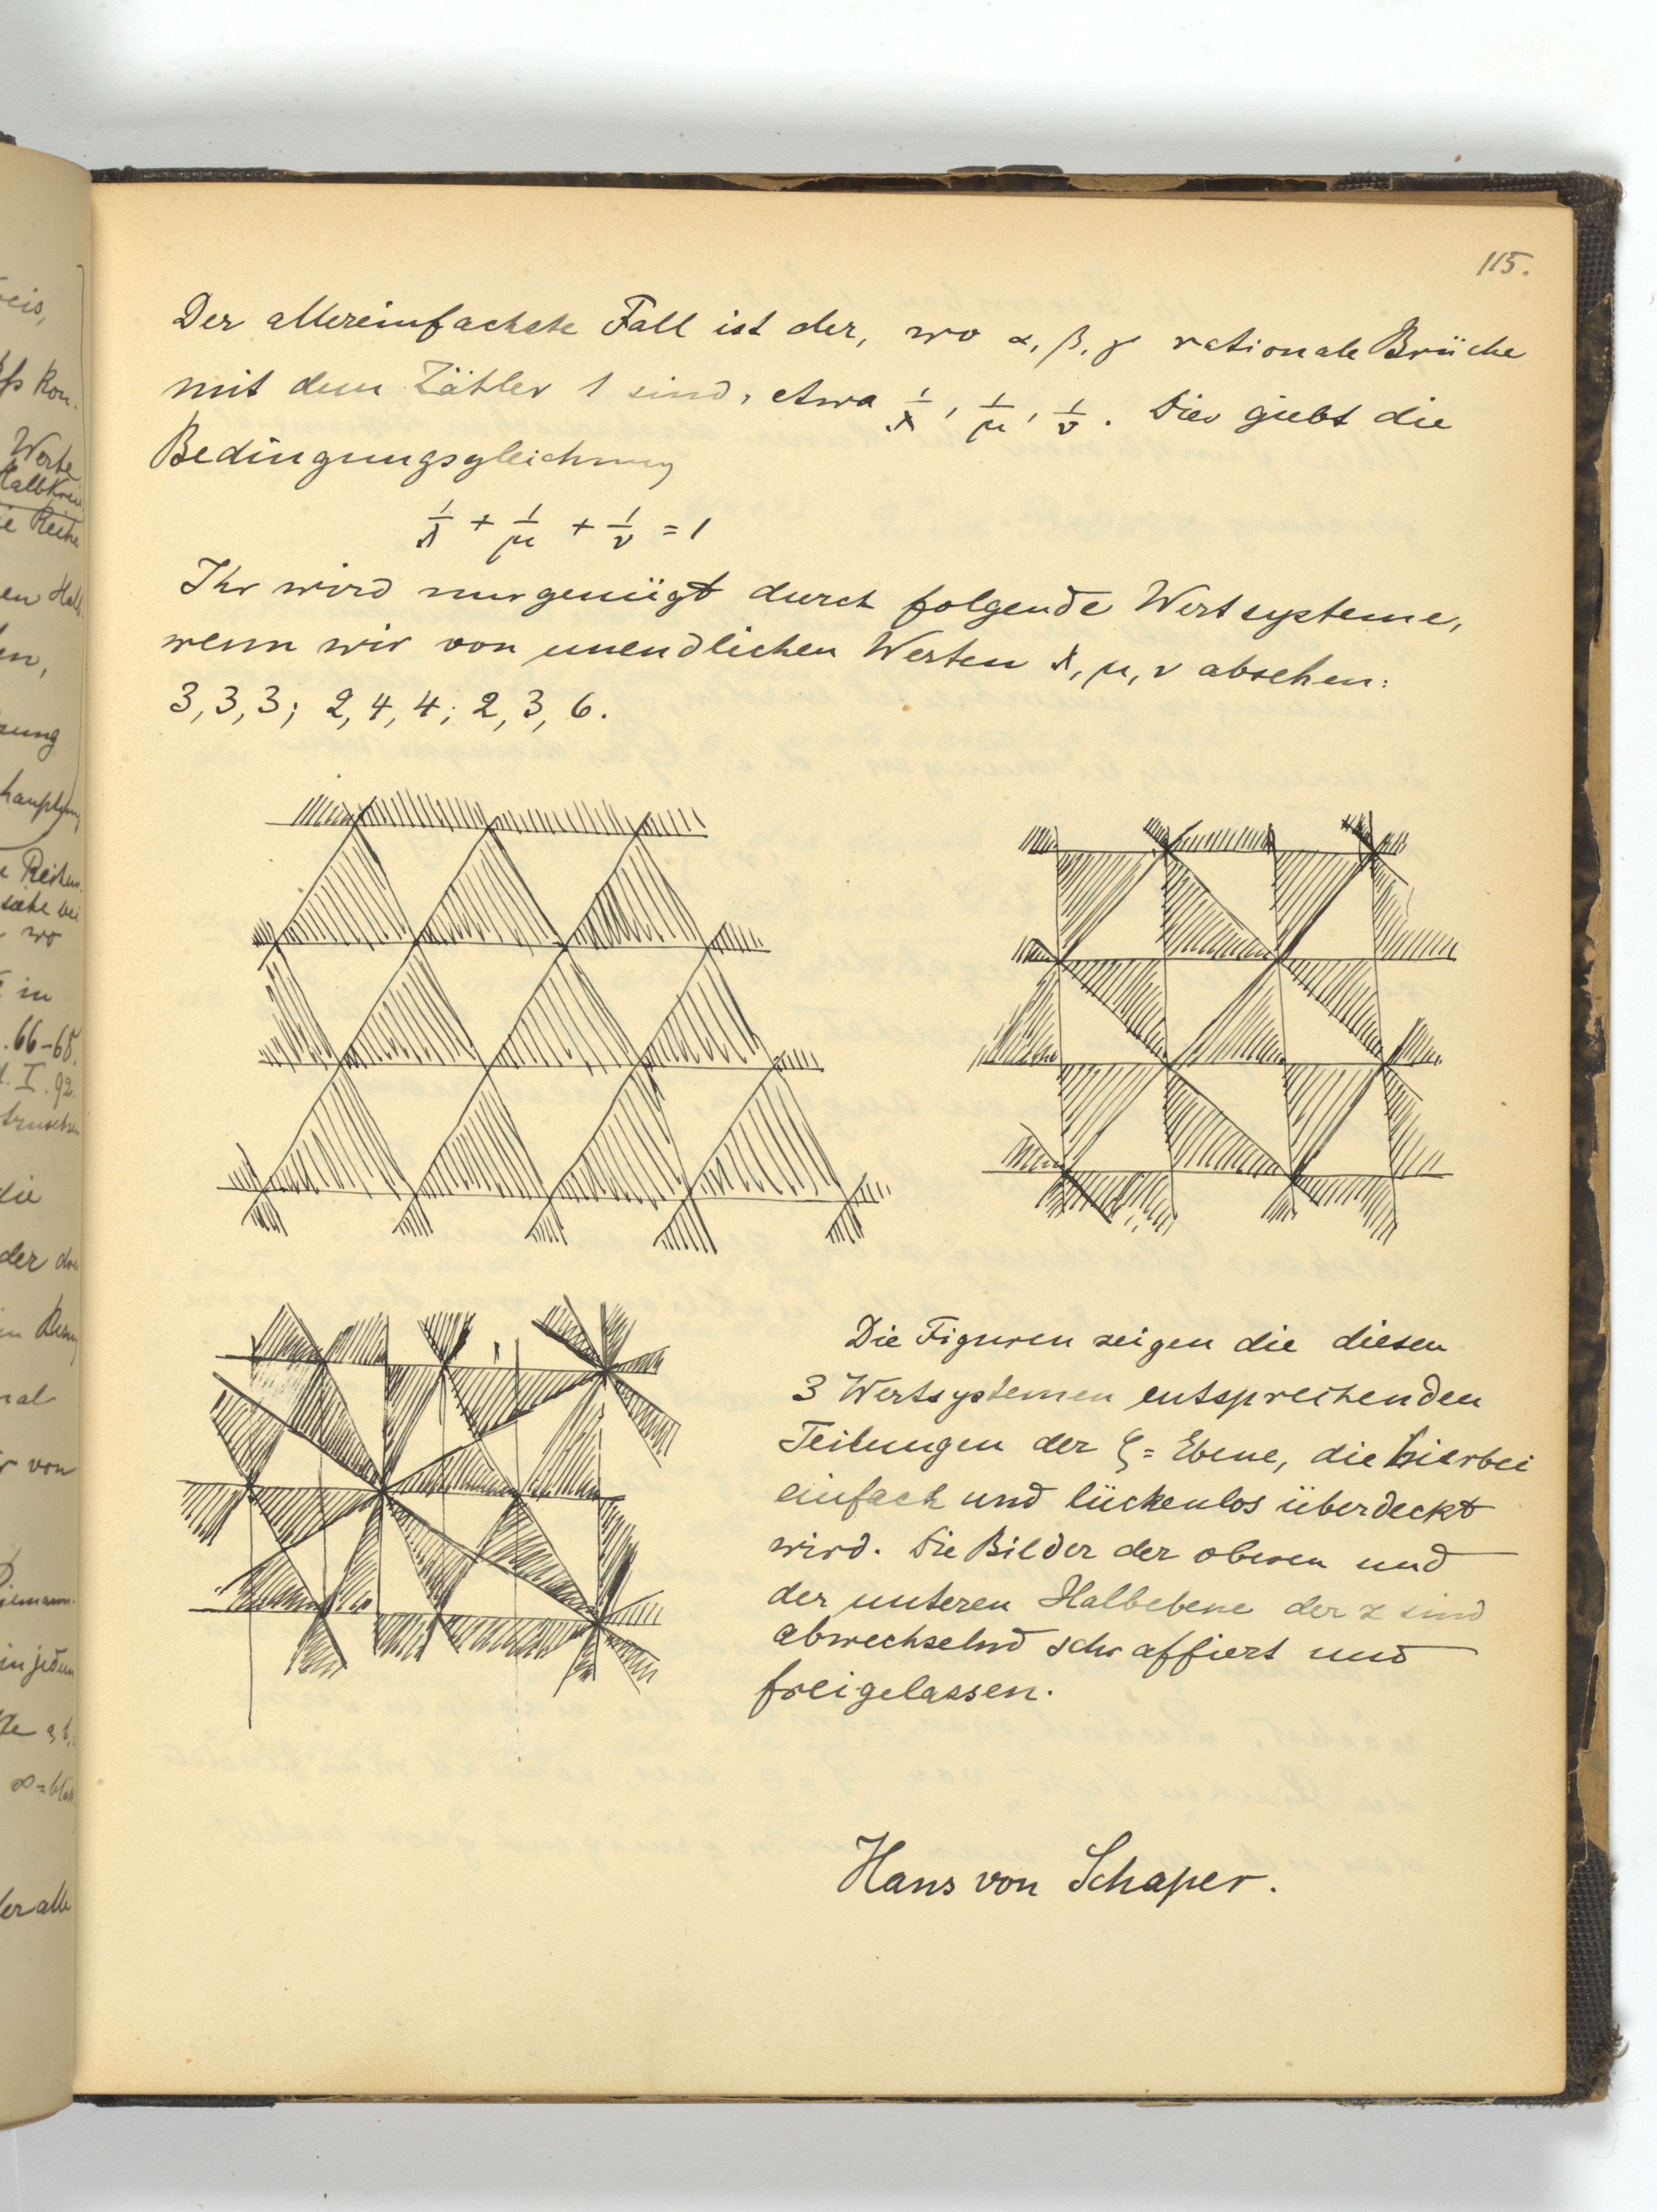 eis,
Kon-
Werte
Halbkrei
ie Reihe
en Halb
en,
Reihen
siehe bei
wo
in
. 66-68.
I. 92.
die
der
in
nal
r von
Riemann-
in jedem
der alle
115.
Der allereinfachste Fall ist der, wo α, β, γ rationale Brüche
mit dem Zähler 1 sind, etwa 1/λ, 1/μ, 1/ν. Dies giebt die
Bedingungsgleichung
1/λ + 1/μ + 1/ν = 1
Ihr wird nur genügt durch folgende Wertsysteme,
wenn wir von unendlichen Werten λ, μ, ν absehen:
3, 3, 3; 2, 4, 4; 2, 3, 6.
Die Figuren zeigen die diesen
3 Wertsystemen entsprechenden
Teilungen der ζ = Ebene, die hierbei
einfach und lückenlos überdeckt
wird. Die Bilder der oberen und
der unteren Halbebene der z sind
abwechselnd schraffiert und
freigelassen.
Hans von Schaper.